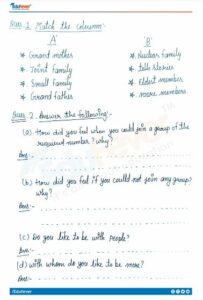 Ques. 1. Match the column:
'A' 'B'
* Grand mother * Nuclear family
* Joint family * tell stories
* Small family * Eldest member
* Grand father * more members
Ques 2. Answer the following:-
(a) How did you feel when you could join a group of the
required number? why?
Ans:-
(b) How did you feel if you could not join any group?
why?
Ans:-
(c) Do you like to be with people?
Ans:-
(d) with whom do you like to be more?
Ans:-